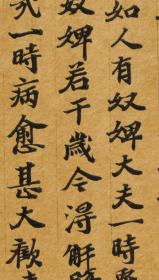 如人有奴婢大夫一時
奴婢若干歲今得解
一時病愈甚大歡